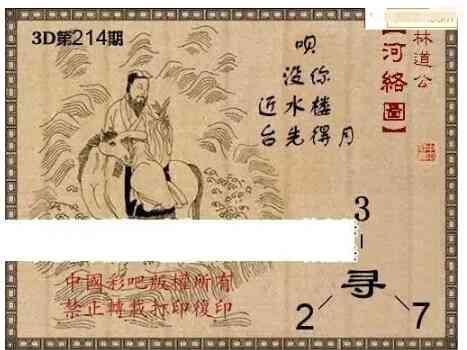 3D第214期
呗
没你
近水楼
台先得月
林道公
【河络圖】
3
寻
2 7
中國彩吧版權所有
禁止轉載打印復印